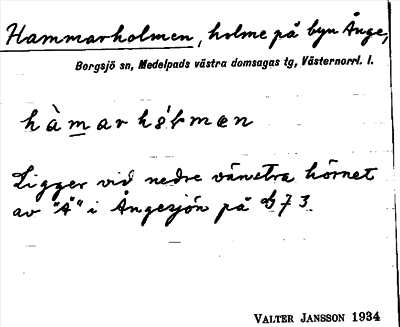 Hammarholmen, holme på byn Ånge,
Borgsjö sn, Medelpads västra domsagas tg, Västernorrl. l.
hàmarhólmen
Ligger vid nedre vänstra hörnet
av "Å" i Ångesjön på 73
VALTER JANSSON 1934